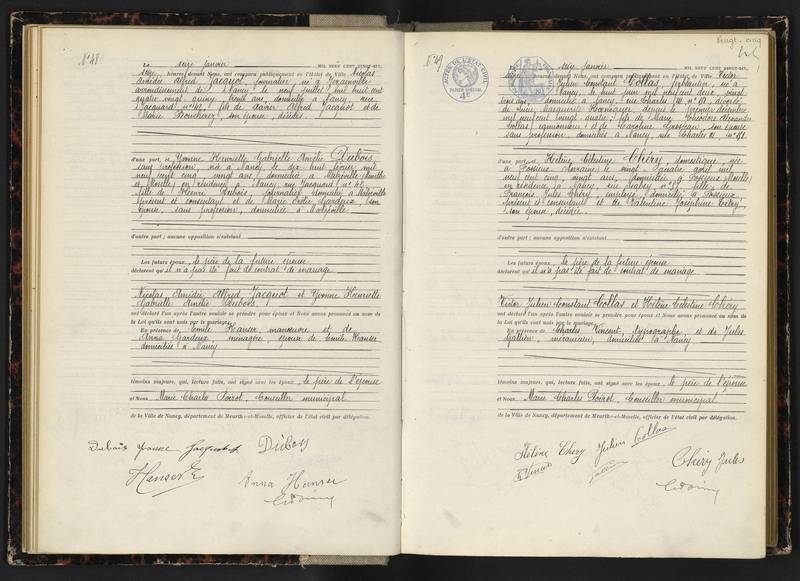 N° 48
seize janvier MIL NEUF CENT VINGT-SIX,
heures devant Nous, ont comparu publiquement en l'Hôtel de Ville Nicolas
Amédée Alfred Jacquot, journalier, né à
arrondissement de Nancy, le neuf juillet mil huit cent
quatre vingt quinze, trente ans, domicilié à Nancy, rue
Jacquard n° 42, fils de Xavier Alfred Jacquot et de
Marie son épouse, décédés
d'une part, et Yvonne Henriette Gabrielle Amélie Dubois,
sans profession, née à Nancy le dix huit février mil
neuf cent cinq, vingt ans, domiciliée à Malzéville (Meurthe
et Moselle) en résidence à Nancy rue Jacquard n° 42
fille de Dubois, journalier, domicilié à Malzéville
présent et consentant et de Marie Gardeux, son
épouse, sans profession, domiciliée à Malzéville
d'autre part ; aucune opposition n'existant
Les futurs époux, le père de la future épouse
déclarent qu'il n'a pas été fait de contrat de mariage
Nicolas Amédée Alfred Jacquot et Yvonne Henriette
Gabrielle Amélie Dubois
ont déclaré l'un après l'autre vouloir se prendre pour époux et Nous avons prononcé au nom de
la Loi qu'ils sont unis par le mariage.
En présence de Emile Hanser manœuvre et de
Anna Gardeux ménagère, épouse de Emile Hanser
domiciliés à Nancy
témoins majeurs, qui, lecture faite, ont signé avec les époux, le père de l'épouse
et Nous, Marie Charles Poirot, Conseiller municipal
de la Ville de Nancy, département de Meurthe-et-Moselle, officier de l'état civil par délégation.
Dubois Yvonne Jacquot Dubois
Hanser E
Anna Hanser
Vingt-cinq
25
N° 49
seize janvier MIL NEUF CENT VINGT-SIX,
heures devant Nous, ont comparu publiquement en l'Hôtel de Ville Victor
Julien Constant Collas, né à
Nancy, le huit juin mil neuf cent deux, vingt
trois ans, domicilié à Nancy, rue Charles III n° 171, divorcé
mil neuf cent vingt quatre; fils de Marie Théodore Alexandre
Collas, et de Caroline son épouse
sans profession, domiciliés à Nancy, rue Charles III, n° 171
d'une part, et Hélène Célestine Chéry, domestique, née
à Fossieux (Lorraine) le vingt quatre août mil
neuf cent cinq, vingt ans, domiciliée à Fossieux (Moselle)
en résidence à Nancy, rue fille de
François Jules Chéry, domicilié à Fossieux,
présent et consentant et de Valentine Joséphine
son épouse, décédée.
d'autre part ; aucune opposition n'existant
Les futurs époux, le père de la future épouse
déclarent qu'il n'a pas été fait de contrat de mariage
Victor Julien Constant Collas et Hélène Célestine Chéry
ont déclaré l'un après l'autre vouloir se prendre pour époux et Nous avons prononcé au nom de
la Loi qu'ils sont unis par le mariage.
En présence de Charles Vincent, typographe et de Jules
mécanicien, domiciliés à Nancy
témoins majeurs, qui, lecture faite, ont signé avec les époux, le père de l'épouse
et Nous, Marie Charles Poirot, Conseiller municipal
de la Ville de Nancy, département de Meurthe-et-Moselle, officier de l'état civil par délégation.
Hélène Chery Julien Collas
Chéry Jules